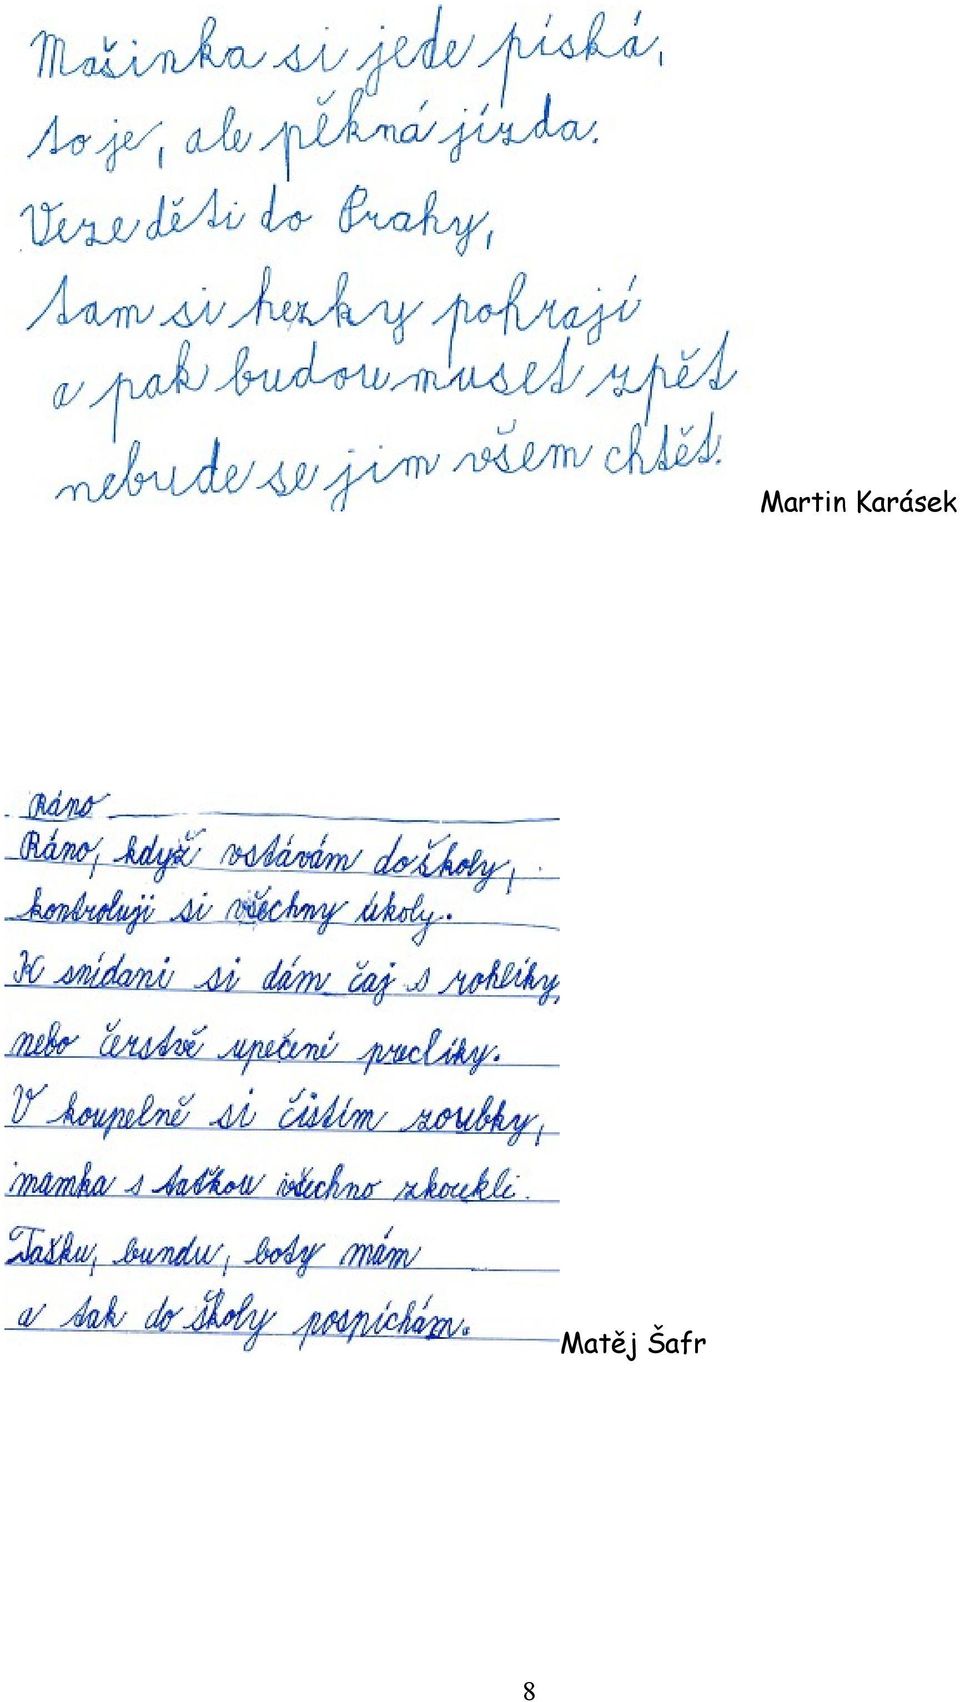 Mašinka si jede píská,
to je, ale pěkná jízda.
Veze děti do Prahy,
tam si hezky pohrají
a pak budou muset zpět
nebude se jim všem chtět.
Martin Karásek
Ráno
Ráno, když vstávám do školy,
kontroluji si všechny úkoly.
K snídani si dám čaj s rohlíky,
nebo čerstvě upečené preclíky.
V koupelně si čistím zoubky,
mamka s taťkou všechno zkoukli.
Tašku, bundu, boty mám
a tak do školy pospíchám.
Matěj Šafr
8